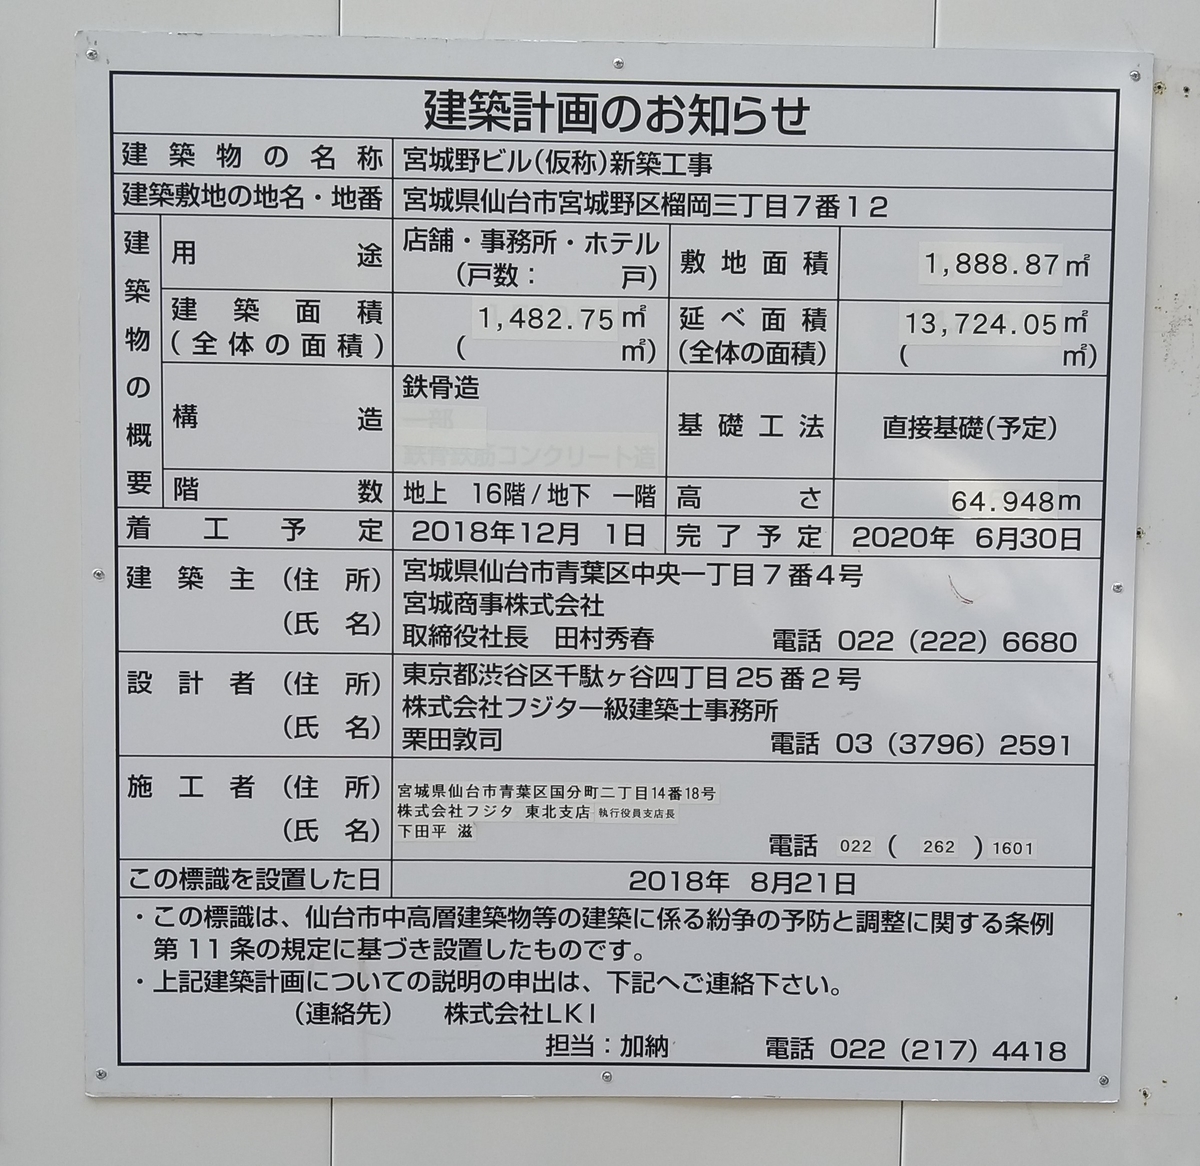 建築計画のお知らせ
建築物の名称 宮城野ビル(仮称)新築工事
建築敷地の地名・地番 宮城県仙台市宮城野区榴岡三丁目7番12
建築物の概要
用途 店舗・事務所・ホテル 敷地面積 1,888.87㎡
(戸数: 戸)
建築面積 1,482.75㎡ 延べ面積 13,724.05㎡
(全体の面積) ( ㎡) (全体の面積) ( ㎡)
鉄骨造
一部
構造 基礎工法 直接基礎(予定)
鉄骨鉄筋コンクリート造
階数 地上 16階/地下 一階 高さ 64.948m
着工予定 2018年12月 1日 完了予定 2020年 6月30日
建築主(住所) 宮城県仙台市青葉区中央一丁目7番4号
宮城商事株式会社
(氏名) 取締役社長 田村秀春 電話 022(222)6680
設計者(住所) 東京都渋谷区千駄ヶ谷四丁目25番2号
株式会社フジタ一級建築士事務所
(氏名) 栗田敦司 電話 03(3796)2591
施工者(住所) 宮城県仙台市青葉区国分町二丁目14番18号
株式会社フジタ 東北支店 執行役員支店長
(氏名) 下田平 滋
電話 022(262)1601
この標識を設置した日 2018年 8月21日
・この標識は、仙台市中高層建築物等の建築に係る紛争の予防と調整に関する条例
第11条の規定に基づき設置したものです。
・上記建築計画についての説明の申出は、下記へご連絡下さい。
(連絡先) 株式会社LKI
担当:加納 電話 022(217)4418